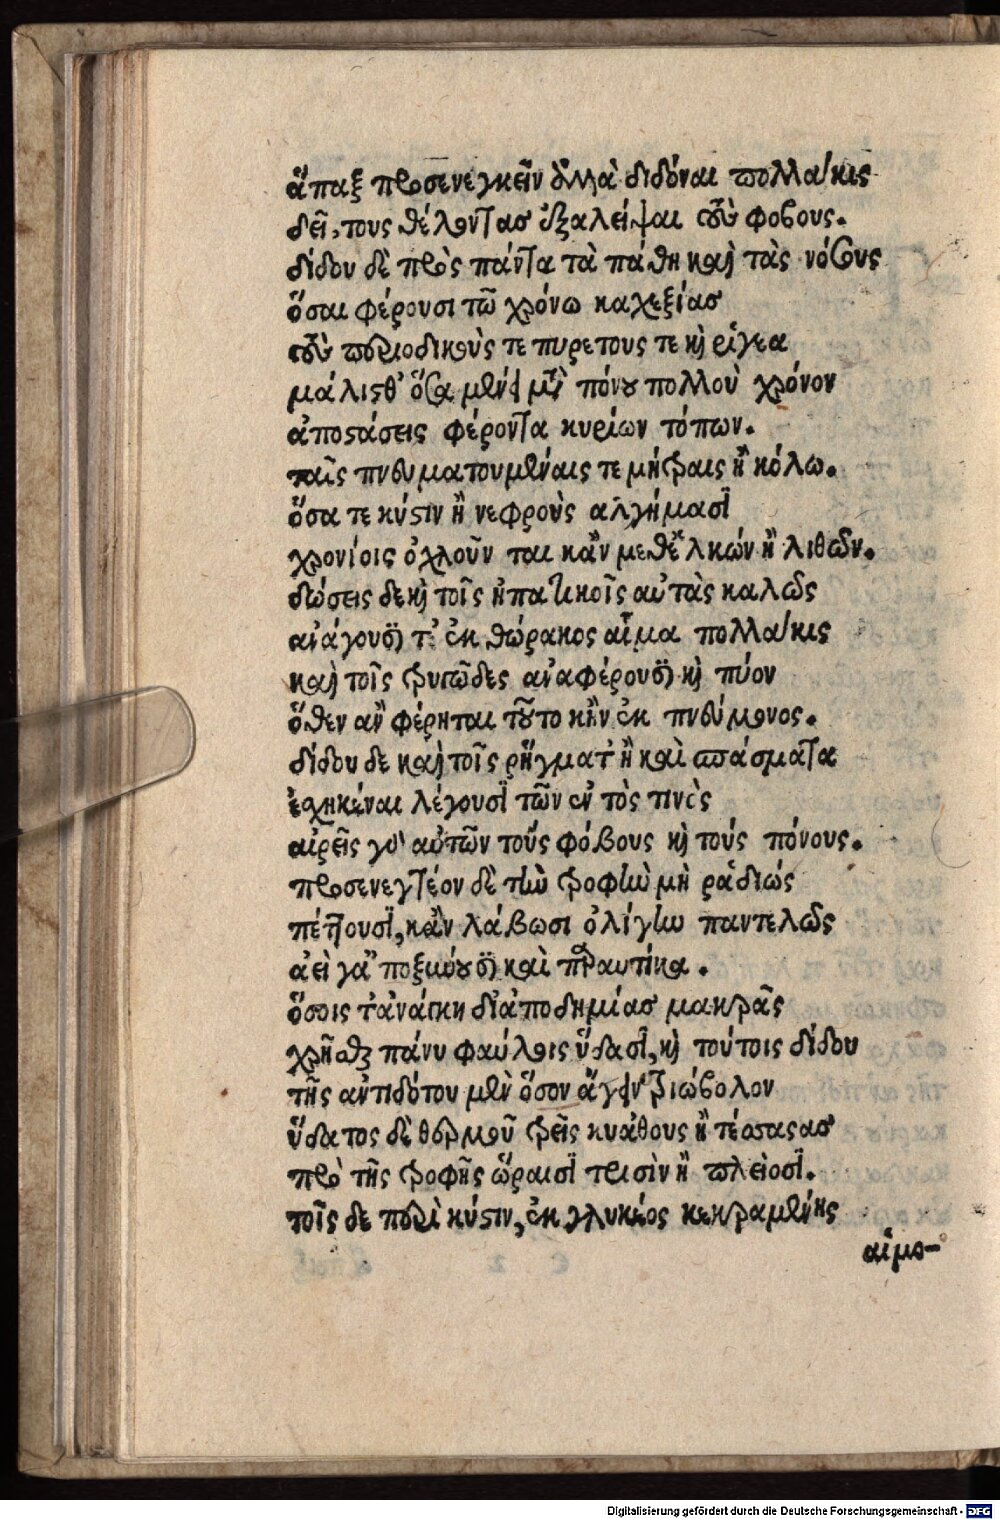 ἅπαξ προσενεγκεῖν ἀλλὰ διδόναι πολλάκις
δεῖ, τους θέλοντας ἐξαλεῖψαι τοὺς φόβους.
δίδου δὲ πρὸς πάντα τὰ πάθη καὶ τὰς νόσους
ὅσαι φέρουσι τῶ χρόνω καχεξίας
τοὺς περιοδικοὺς τε πυρετους τε καὶ ῥίγεα
μάλισθ' ὅσα μετὰ πόνου πολλοὺ χρόνον
ἀποστάσεις φέροντα κυρίων τόπων.
ταῖς πνευματουμέναις τε μήτραις ἢ κόλω.
ὅσα τε κύστιν ἢ νεφροὺς αλγήμασϊ
χρονίοις ὀχλοῦν ται κἂν μεθ' ἑλκών ἢ λιθῶν.
δώσεις δε καὶ τοῖς ἡπατικοῖς αὐτὰς καλῶς
ανάγουσϊ τ' ἐκ θώρακος αἷμα πολλάκις
καὶ τοῖς τρυγῶδες αναφέρουσϊ καὶ πύον
ὅθεν ἂν φέρηται τοῦτο κἢν ἐκ πνεύμονος.
δίδου δε καὶ τοῖς ῥήγματ' ἢ καὶ σπάσματα
ἐσχηκέναι λέγουσϊ τῶν ἐν τὸς τινὲς
αἱρεῖς γὰρ αὐτῶν τοὺς φόβους καὶ τούς πόνους.
προσενεγτέον δὲ τὴν τροφὴν μὴ ῥᾳδιώς
πέττουσϊ, κἂν λάβωσι ὀλίγην παντελῶς
ἀεὶ γὰρ ποξινούσϊ καὶ παραυτίκα.
ὅσοις τ' ἀνάγκη δἰ ἀποδημίας μακρᾶς
χρῆσθαι πάνυ φαύλοις ὕδασϊ, καὶ τούτοις δίδου
τῆς αντιδότου μὲν ὅσον ἄγειν τριώβολον
ὕδατος δὲ θερμοῦ τρεῖς κυάθους ἢ τέσσαρας
πρὸ τῆς τροφῆς ὥραισϊ τρισὶν ἢ πλείοσϊ.
τοῖς δε περὶ κύστιν, ἐκ γλυκέος κεκραμένης
αἱμο-
Digitalisierung gefördert durch die Deutsche Forschungsgemeinschaft - DFG